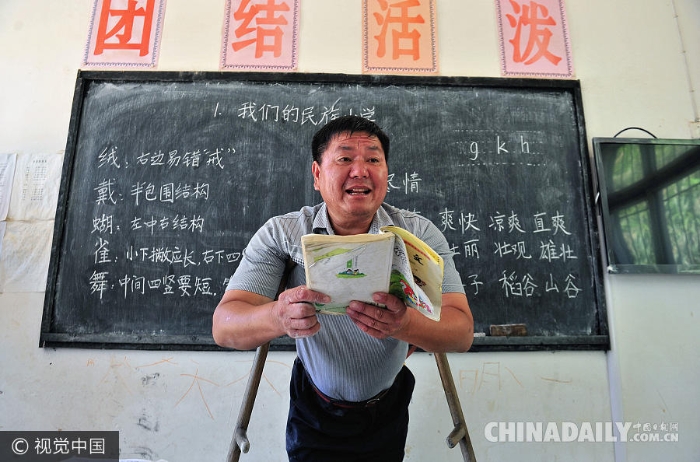 团结活泼
1. 我们的民族小学
绒：右边易错“戒”
戴：半包围结构
蝴：左中右结构
雀：小下撇应长，右下四
舞：中间四竖要短，
g k h
情
爽快 凉爽 直爽
壮观 雄壮
子 稻谷 山谷
© 视觉中国
CHINADAILY 中国日报网
.COM.CN